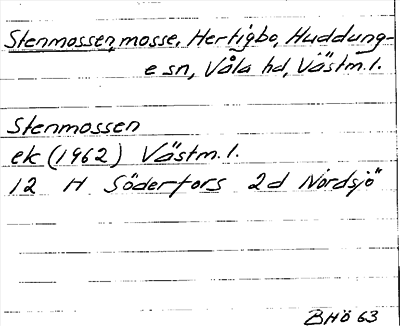 Stenmossen, mosse, Hertigbo, Huddung-
e sn, Våla hd, Västm. l.
Stenmossen
ek (1962) Västm. l.
12 H Söderfors 2d Nordsjö
BHÖ 63